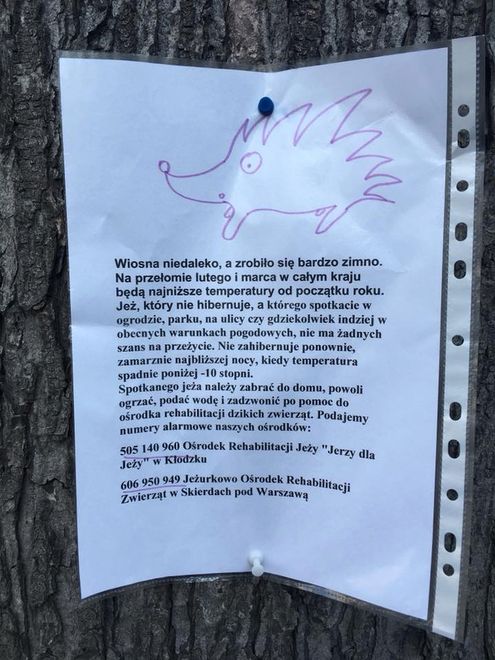 Wiosna niedaleko, a zrobiło się bardzo zimno.
Na przełomie lutego i marca w całym kraju
będą najniższe temperatury od początku roku.
Jeż, który nie hibernuje, a którego spotkacie w
ogrodzie, parku, na ulicy czy gdziekolwiek indziej w
obecnych warunkach pogodowych, nie ma żadnych
szans na przeżycie. Nie zahibernuje ponownie,
zamarznie najbliższej nocy, kiedy temperatura
spadnie poniżej -10 stopni.
Spotkanego jeża należy zabrać do domu, powoli
ogrzać, podać wodę i zadzwonić po pomoc do
ośrodka rehabilitacji dzikich zwierząt. Podajemy
numery alarmowe naszych ośrodków:
505 140 960 Ośrodek Rehabilitacji Jeży "Jerzy dla
Jeży" w Kłodzku
606 950 949 Jeżurkowo Ośrodek Rehabilitacji
Zwierząt w Skierdach pod Warszawą